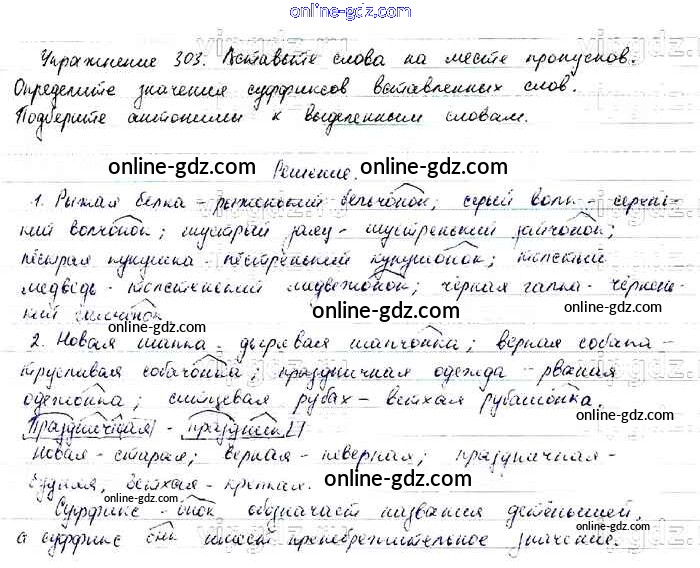 online-gdz.com
Упражнение 303. Вставьте слова на месте пропусков.
Определите значения суффиксов вставленных слов.
Подберите антонимы к выделенным словам.
online-gdz.com online-gdz.com
Решение.
1. Рыжая белка - рыженький бельчонок; серый волк - серень-
кий волчонок; шустрый заяц - шустренький зайчонок;
пёстрая кукушка - пёстренький кукушонок; толстый
online-gdz.com
медведь - толстенький медвежонок; чёрная галка - чёрнень-
кий галчонок
online-gdz.com
2. Новая шапка - дырявая шапчонка; верная собака -
online-gdz.com
трусливая собачонка; праздничная одежда - рваная
одежонка; ситцевая рубах - ветхая рубашонка.
online-gdz.com
Праздничная - праздник
Новая - старая; верная - неверная; праздничная -
online-gdz.com
будняя, ветхая - крепкая.
Суффикс - онок обозначает названия детёнышей,
online-gdz.com
а суффикс онк имеет пренебрежительное значение.
online-gdz.com